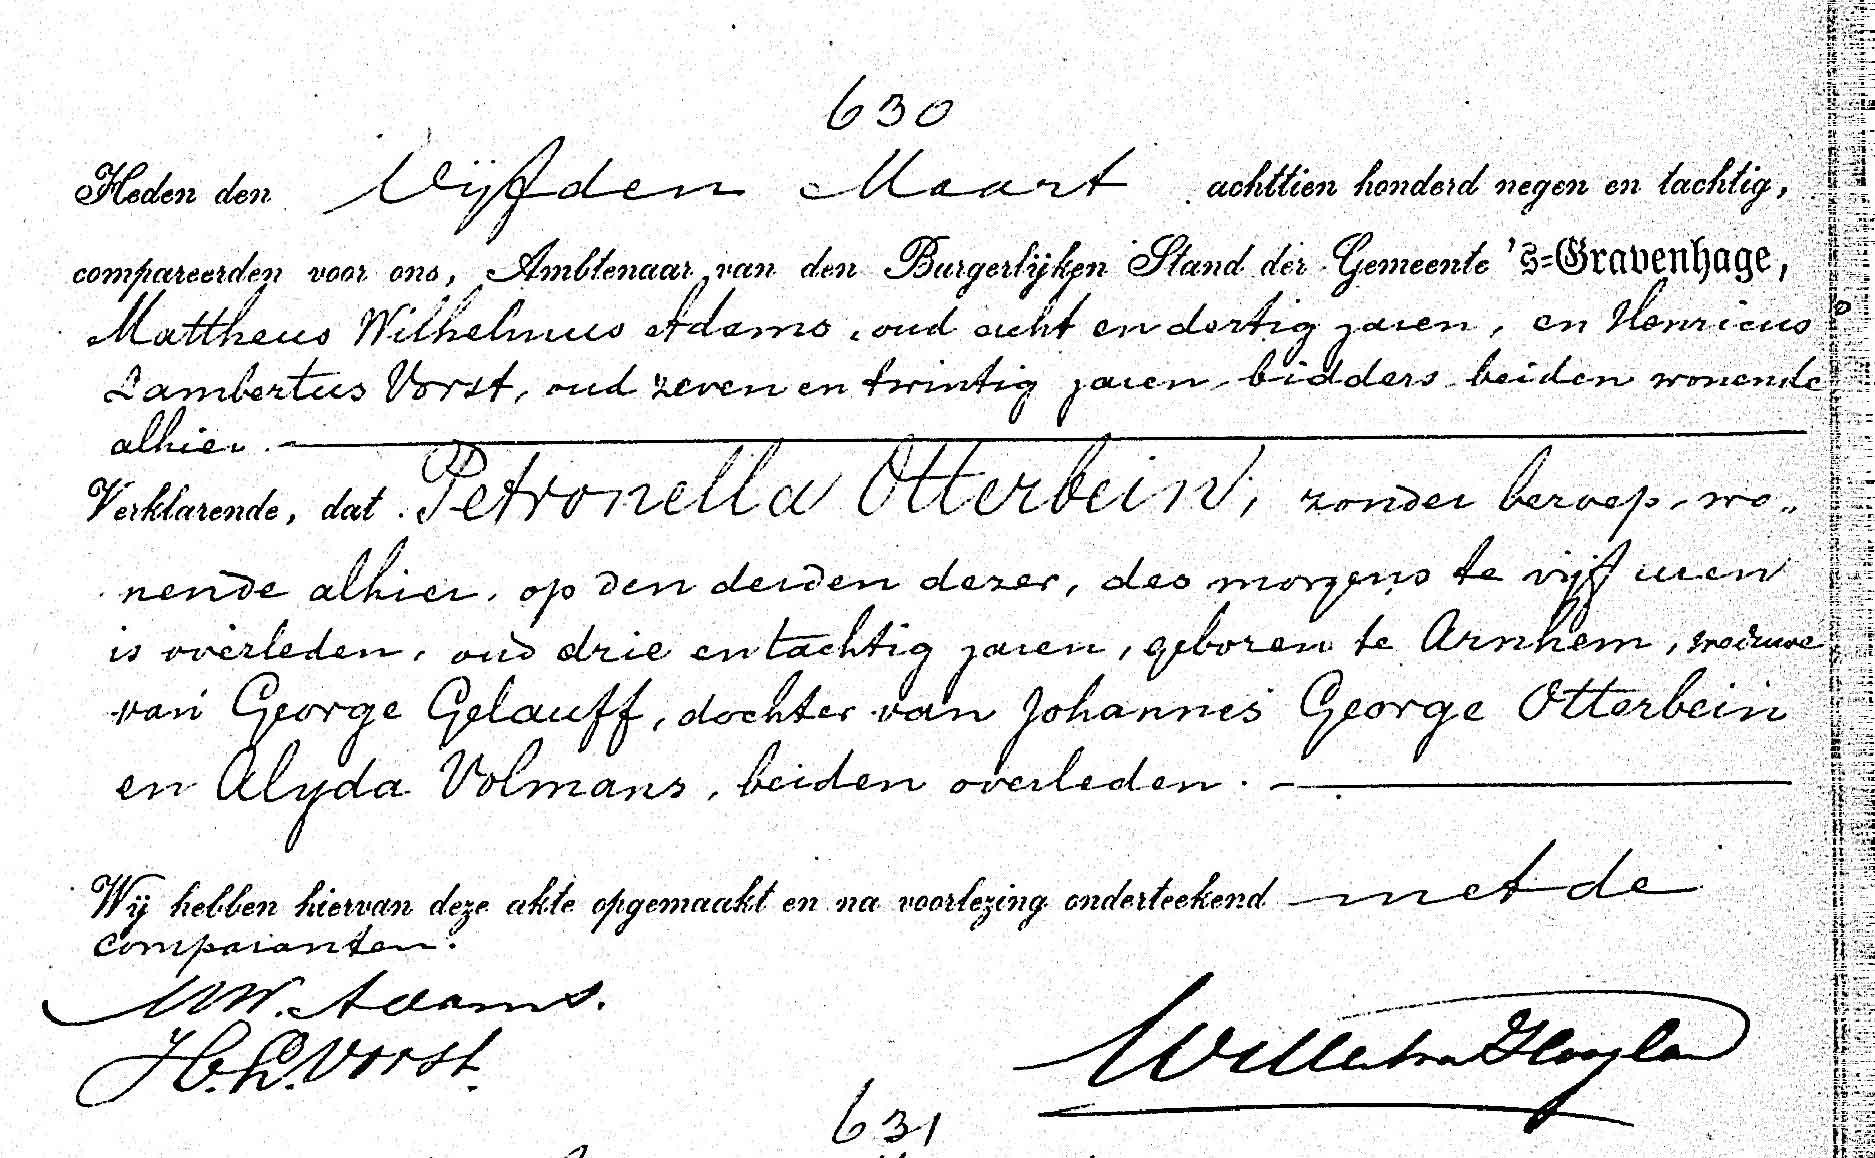 630
Heden den Vijfden Maart achttien honderd negen en tachtig,
compareerden voor ons, Ambtenaar van den Burgerlijken Stand der Gemeente 's-Gravenhage,
Mattheus Wilhelmus Adams, oud acht en dertig jaren, en Henricus
Lambertus Vorst, oud zeven en twintig jaren, bidders beiden wonende
alhier.
Verklarende, dat Petronella Otterbein, zonder beroep, wo„
nende alhier, op den derden dezer, des morgens te vijf uren
is overleden, oud drie en tachtig jaren, geboren te Arnhem, weduwe
van George Gelauff, dochter van Johannes George Otterbein
en Alyda Volmans, beiden overleden.
Wij hebben hiervan deze akte opgemaakt en na voorlezing onderteekend met de
comparanten.
MW. Adams.
H. L. Vorst.
631